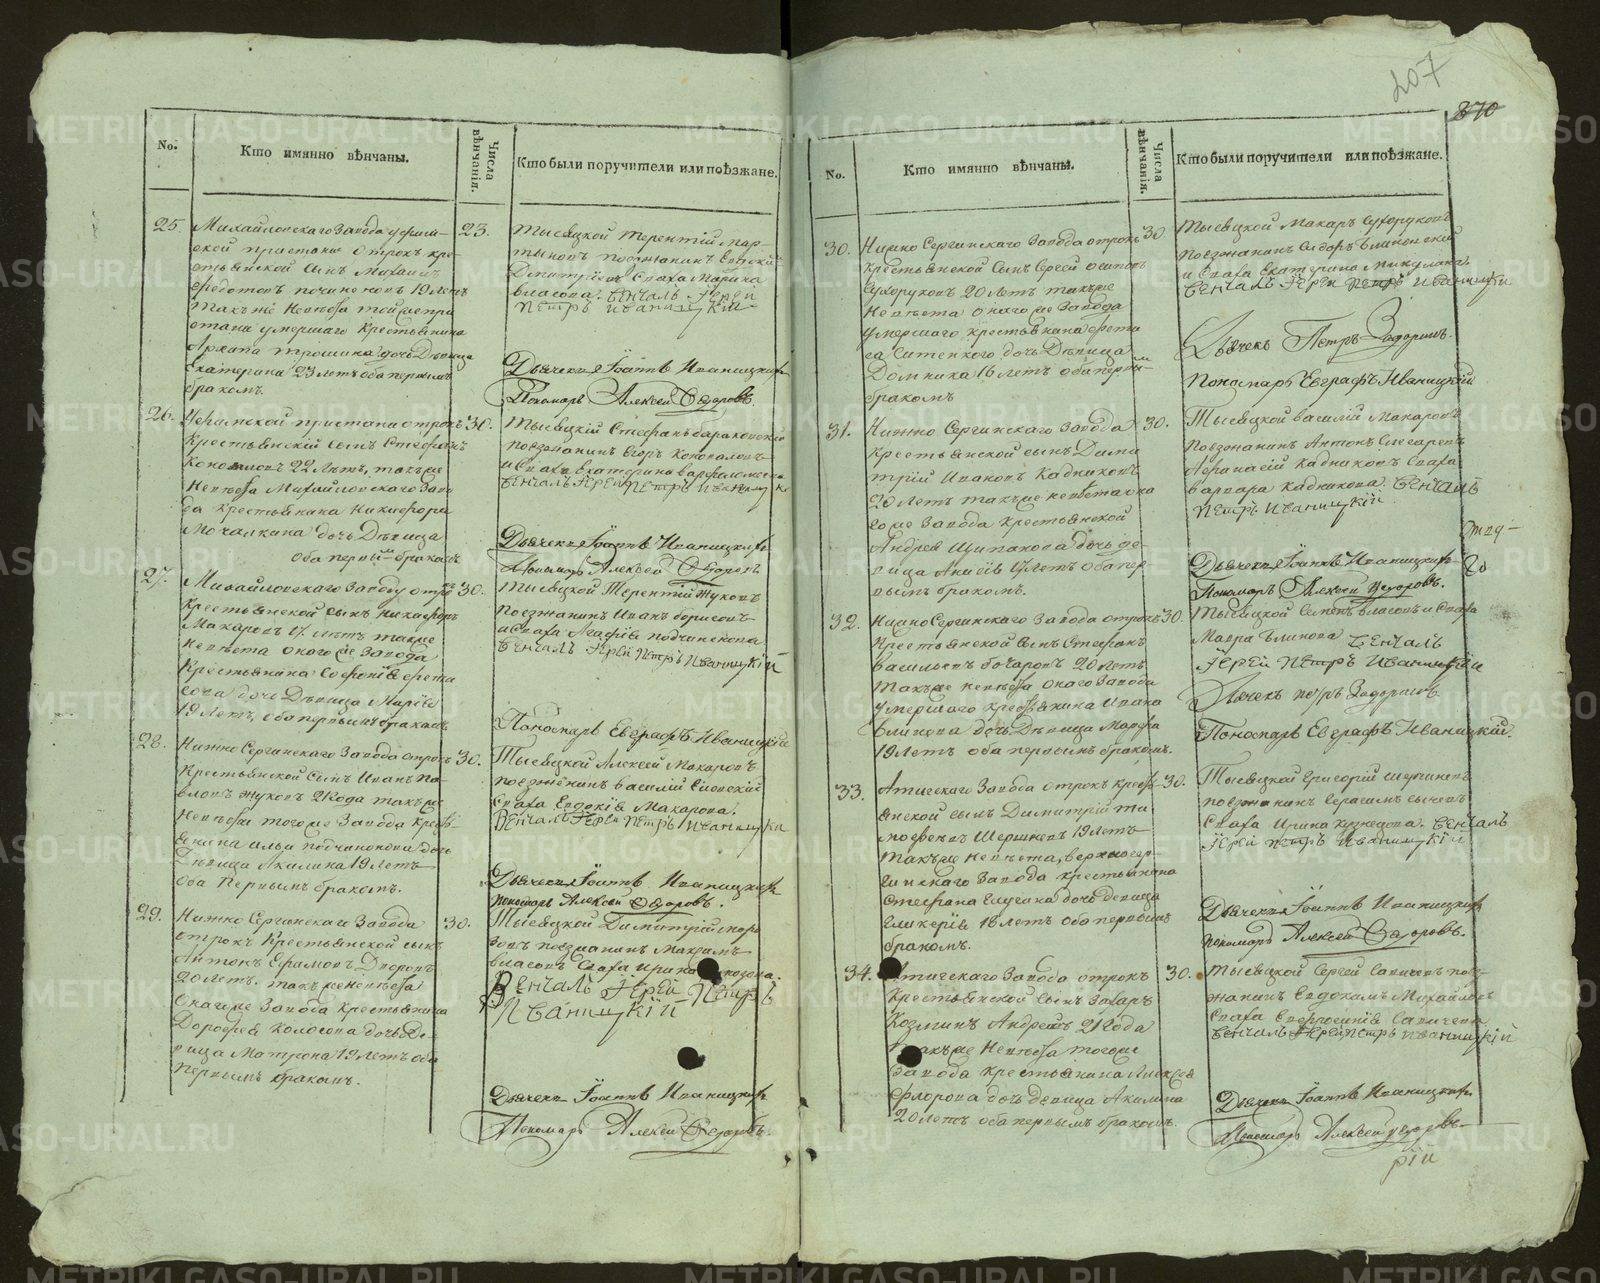 207
270
No.
Кто имянно вѣнчаны.
Числа вѣнчанія.
Кто были поручители или поѣзжане.
25.
Михайловскаго Завода уфим-
ской пристани отрокъ кре
стьянской сынъ Михаилъ
19 Летъ
умершаго Крестьянина
дочь Дѣвица
Екатерина 23 летъ оба первымъ
бракомъ.
23.
Тысяцкой Терентій Мар-
тыновъ поезжанинъ
Димитріевъ Сваха Марина
власова. Венчалъ Іерей
Петръ Иваницкій
Дьячекъ Іоаннъ Иваницкій
Пономарь Алексей Ѳедоровъ.
26.
Уфимской пристани отрокъ
Крестьянскій сынъ Стефанъ
Коноваловъ 22 Летъ, такъже
Невѣста Михайловскаго Заво
да крестьянина Никифора
Мочалкина дочь Дѣвица
оба первымъ бракомъ
30.
Тысяцкій Стефанъ
поезжанинъ Егоръ Коноваловъ
и Сваха Екатерина
Венчалъ Іерей Петръ Иваницкій
Дьячекъ Іоаннъ Иваницкій
Пономарь Алексей Ѳедоровъ
27.
Михайловскаго Заводу отрокъ
Крестьянской сынъ Никифоръ
Макаровъ 17 летъ такъже
Невѣста онаго же Завода
Крестьянина
дочь Дѣвица Марія
19 Летъ, оба первымъ бракомъ
30.
Тысяцкой Терентій Жуковъ
поезжанинъ Иванъ борисовъ
и Сваха Агафія подчиненова
Венчалъ Іерей Петръ Иваницкій
Пономарь Евграфъ Иваницкій
28.
Нижно Сергинскаго Завода отрокъ
Крестьянской Сынъ Иванъ Па
вловъ Жуковъ 21 Года такъже
Невѣста тогоже Завода Кресть-
янина Ильи подчиненова дочь
Дѣвица Акилина 19 Летъ
Оба Первымъ бракомъ.
30.
Тысяцкой Алексей Макаровъ
поезжанинъ василій
Сваха Евдокія Макарова.
Венчалъ Іерей Петръ Иваницкій
Дьячекъ Іоаннъ Иваницкій
пономарь Алексей Ѳедоровъ.
29.
Нижно Сергинскаго Завода
отрокъ Крестьянской сынъ
Антонъ Ефимовъ
20 летъ. такъже Невѣста
Онагоже Завода Крестьянина
Дорофея Колосова дочь Де-
вица Матрона 19 летъ оба
Первымъ бракомъ.
30.
Тысяцкой Димитрій
поезжанинъ
власовъ Сваха Ирина
Венчалъ Іерей Петръ
Иваницкій
Дьячекъ Іоаннъ Иваницкій
Пономарь Алексей Ѳедоровъ.
No.
Кто имянно вѣнчаны.
Числа вѣнчанія.
Кто были поручители или поѣзжане.
30.
Нижно Сергинскаго Завода отрокъ
Крестьянской Сынъ Сергей Осиповъ
Сухоруковъ 20 Летъ такъже
Невѣста онаго же Завода
умершаго крестьянина
дочь Дѣвица
Домника 16 летъ оба первым
бракомъ
30
Тысяцкой Макаръ Сухоруковъ
поезжанинъ Сидоръ
и Сваха Екатерина Микулина
Венчалъ Іерей Петръ Иваницкій
Дьячекъ Петръ Задоринъ.
Пономарь Евграфъ Иваницкій
31.
Нижно Сергинскаго Завода
крестьянской сынъ Дими
трій Ивановъ Кадниковъ
20 Летъ такъже невѣста она
го же Завода крестьянской
Андрея Щипанова дочь де-
вица Анисія 17 летъ оба пер-
вымъ бракомъ.
30.
Тысяцкой василій Макаровъ
Поезжанинъ Антонъ Слесаревъ
Афанасій Кадниковъ Сваха
варвара Кадникова. Венчалъ
Петръ Иваницкій
Дьячекъ Іоаннъ Иваницкій
Пономарь Алексей Ѳедоровъ.
32.
Нижно Сергинскаго Завода отрокъ
Крестьянской сынъ Стефанъ
васильевъ бочаровъ 20 летъ
Такъже невѣста онаго Завода
умершаго крестьянина Ивана
блинова дочь Дѣвица Марфа
19 летъ оба первымъ бракомъ.
30.
Тысяцкой Семенъ власовъ и Сваха
Мавра блинова Венчалъ
Іерей Петръ Иваницкій
Дьячекъ петръ Задоринъ
Пономарь Евграфъ Иваницкій.
33.
Атигскаго Завода отрокъ кресть-
янской сынъ Димитрій Ти
мофеевъ Шершневъ 19 летъ
Такъже невѣста, верхносер-
гинскаго Завода крестьянина
Стефана дочь девица
Гликерія 18 летъ оба первымъ
бракомъ.
30.
Тысяцкой Григорій Шершневъ
поезжанинъ Герасимъ
Сваха Ирина. Венчалъ
Іерей Петръ Иваницкій
Дьячекъ Іоаннъ Иваницкій
пономарь Алексей Ѳедоровъ.
34.
Атигскаго Завода отрокъ
Крестьянской Сынъ Захаръ
Козминъ Андреевъ 21 Года
такъже Невѣста тогоже
Завода крестьянина Алексея
Флорова дочь девица Акилина
20 летъ оба первымъ бракомъ.
30.
Тысяцкой Сергей Савичевъ поез-
жанинъ Евдокимъ Михайловъ
Сваха Савичева
Венчалъ Іерей Петръ Иваницкій
Дьячекъ Іоаннъ Иваницкій
Пономарь Алексей Ѳедоровъ
рій